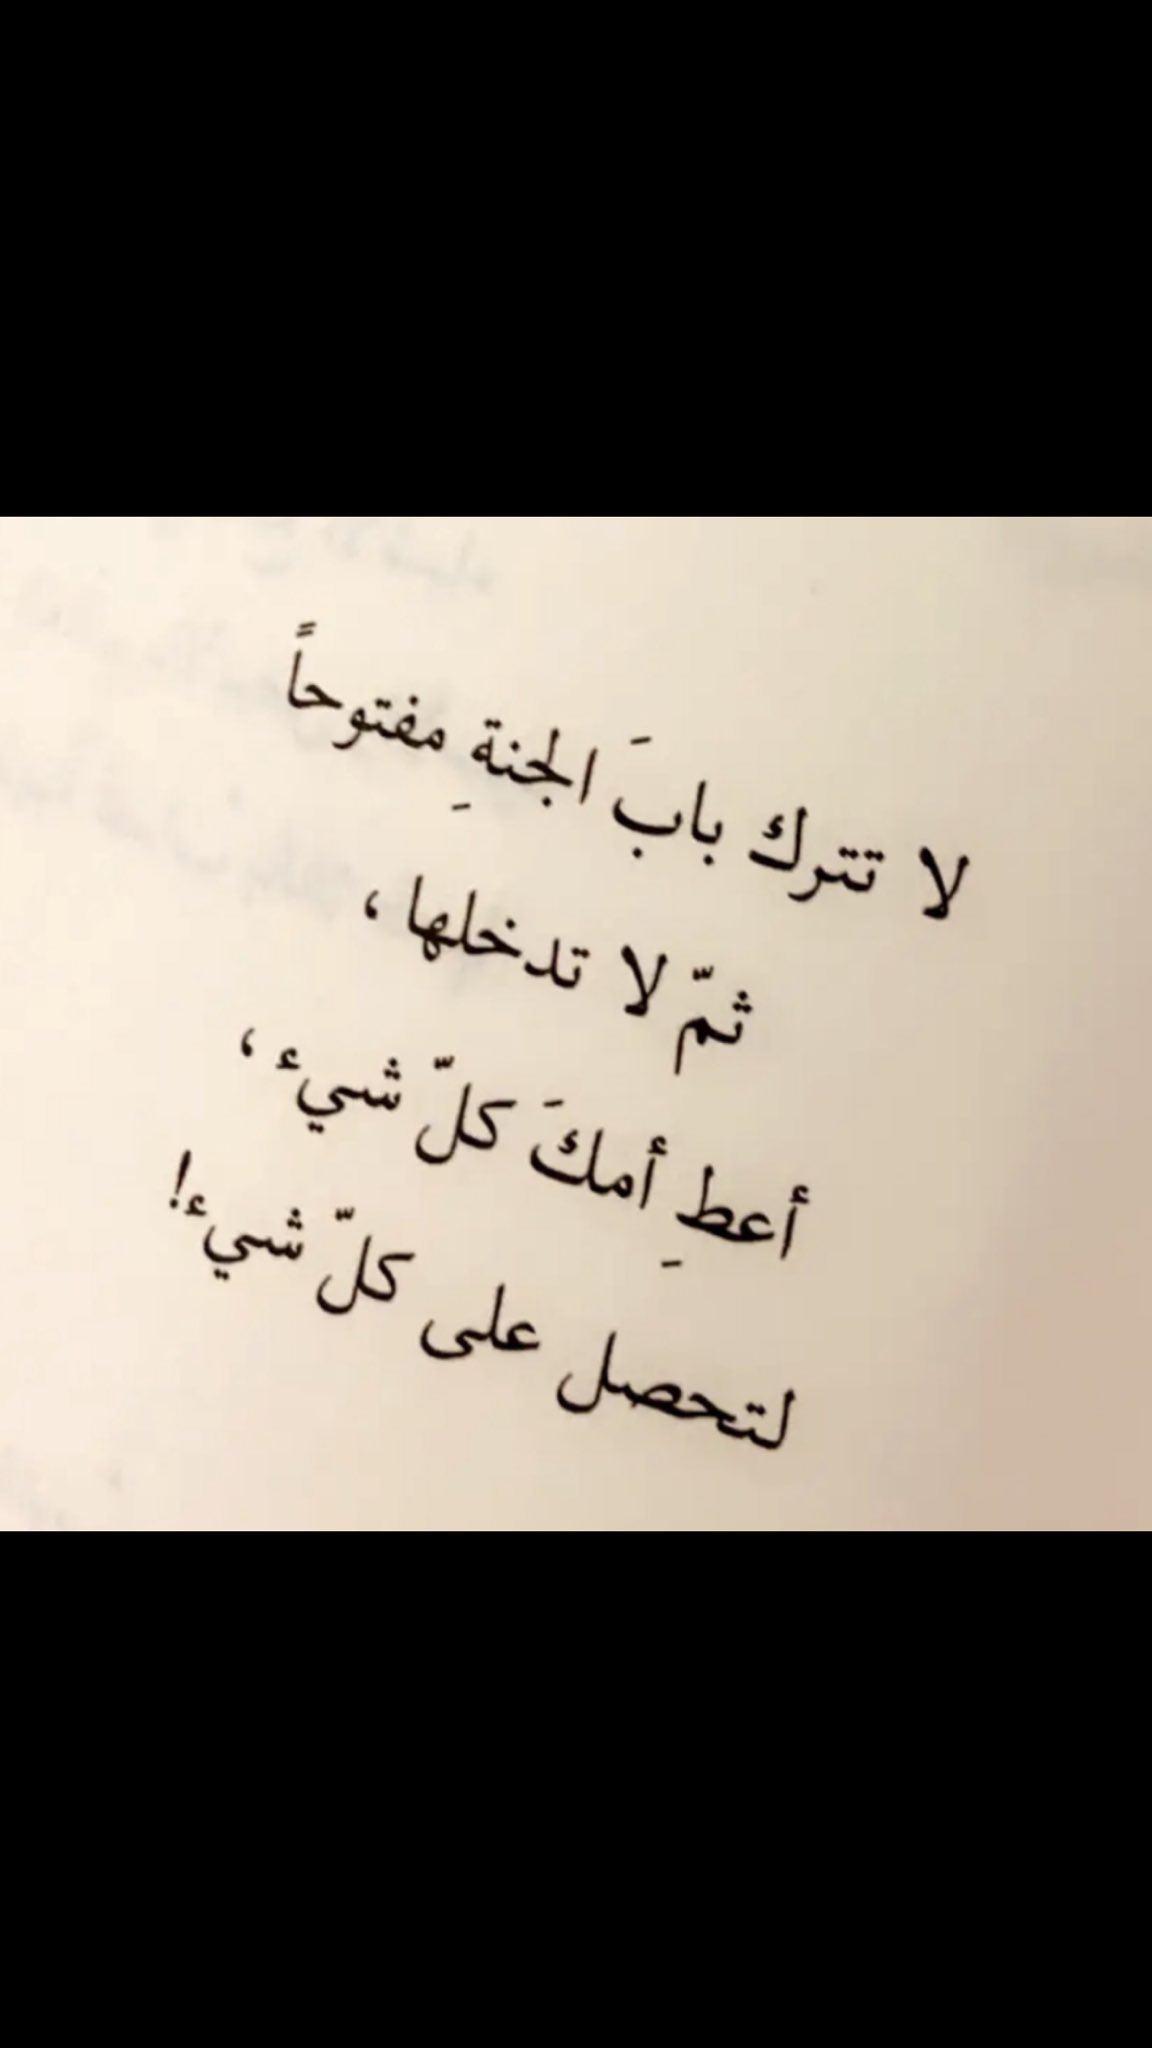 لا تترك بابَ الجنةِ مفتوحاً
ثمّ لا تدخلها ،
أعطِ أمكَ كلّ شيء ،
لتحصل على كلّ شيء!